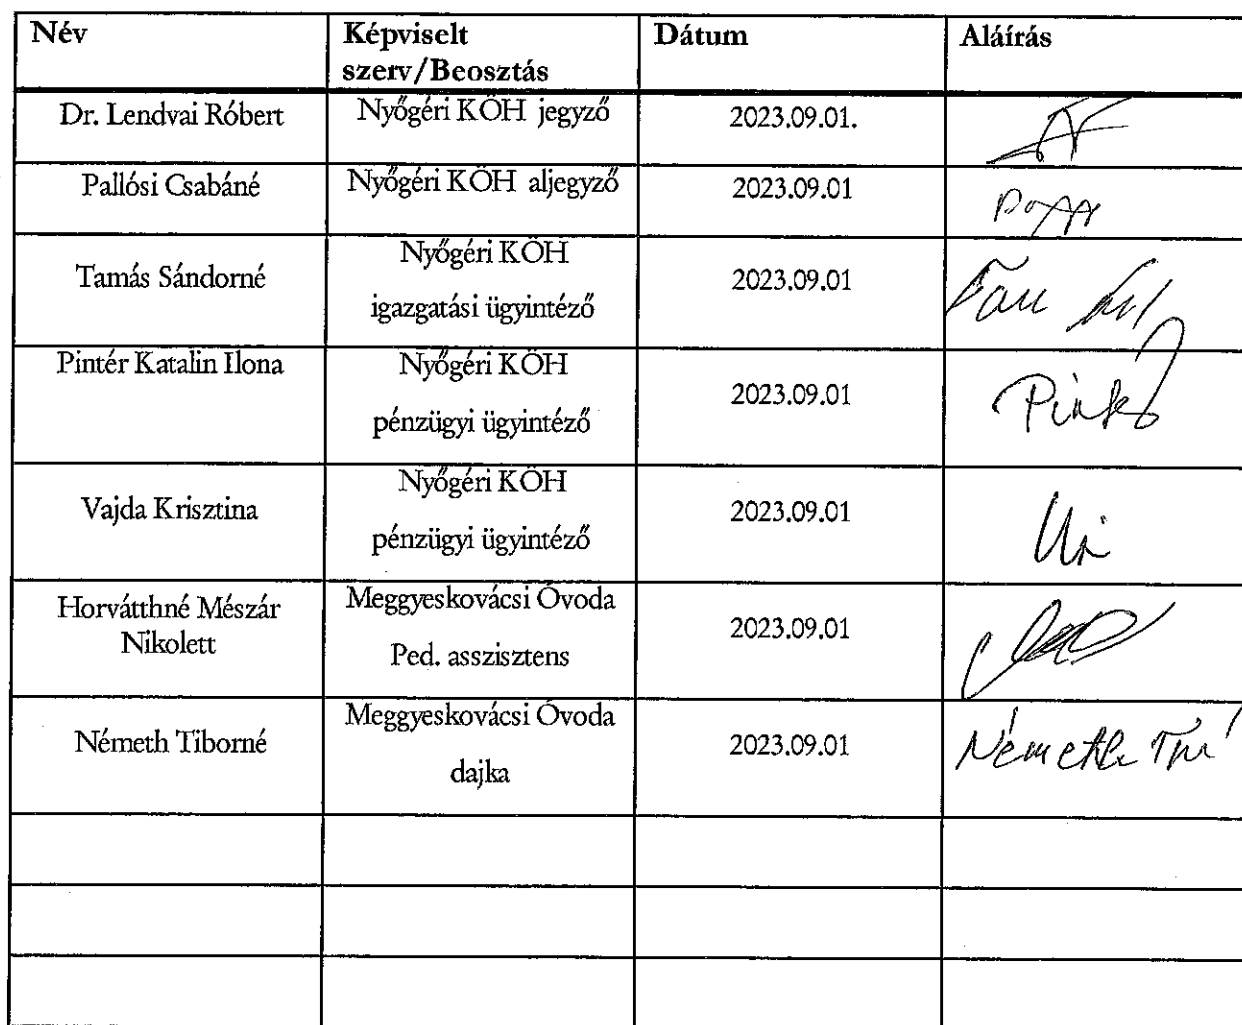 Név Képviselt szerv/Beosztás Dátum Aláírás
Dr. Lendvai Róbert Nyőgéri KÖH jegyző 2023.09.01.
Pallósi Csabáné Nyőgéri KÖH aljegyző 2023.09.01
Tamás Sándorné Nyőgéri KÖH igazgatási ügyintéző 2023.09.01
Pintér Katalin Ilona Nyőgéri KÖH pénzügyi ügyintéző 2023.09.01
Vajda Krisztina Nyőgéri KÖH pénzügyi ügyintéző 2023.09.01
Horvátthné Mészár Nikolett Meggyeskovácsi Óvoda Ped. asszisztens 2023.09.01
Németh Tiborné Meggyeskovácsi Óvoda dajka 2023.09.01 Németh